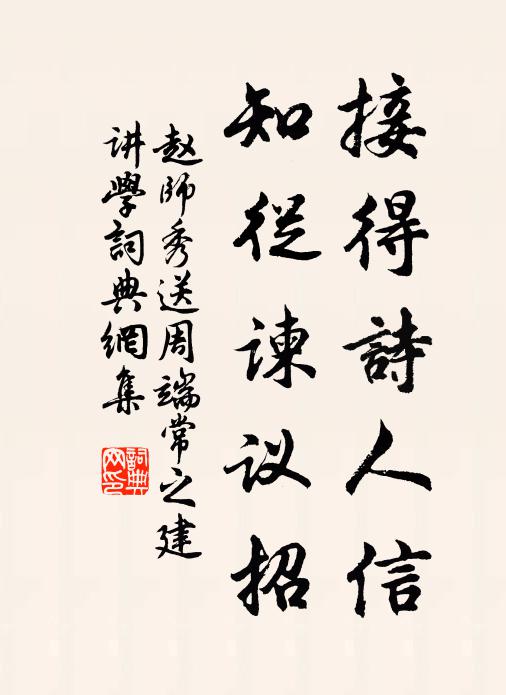 接得詩人信
知從諫议招
赵師秀送周端常之建
讲學詞典網集
詞典网印